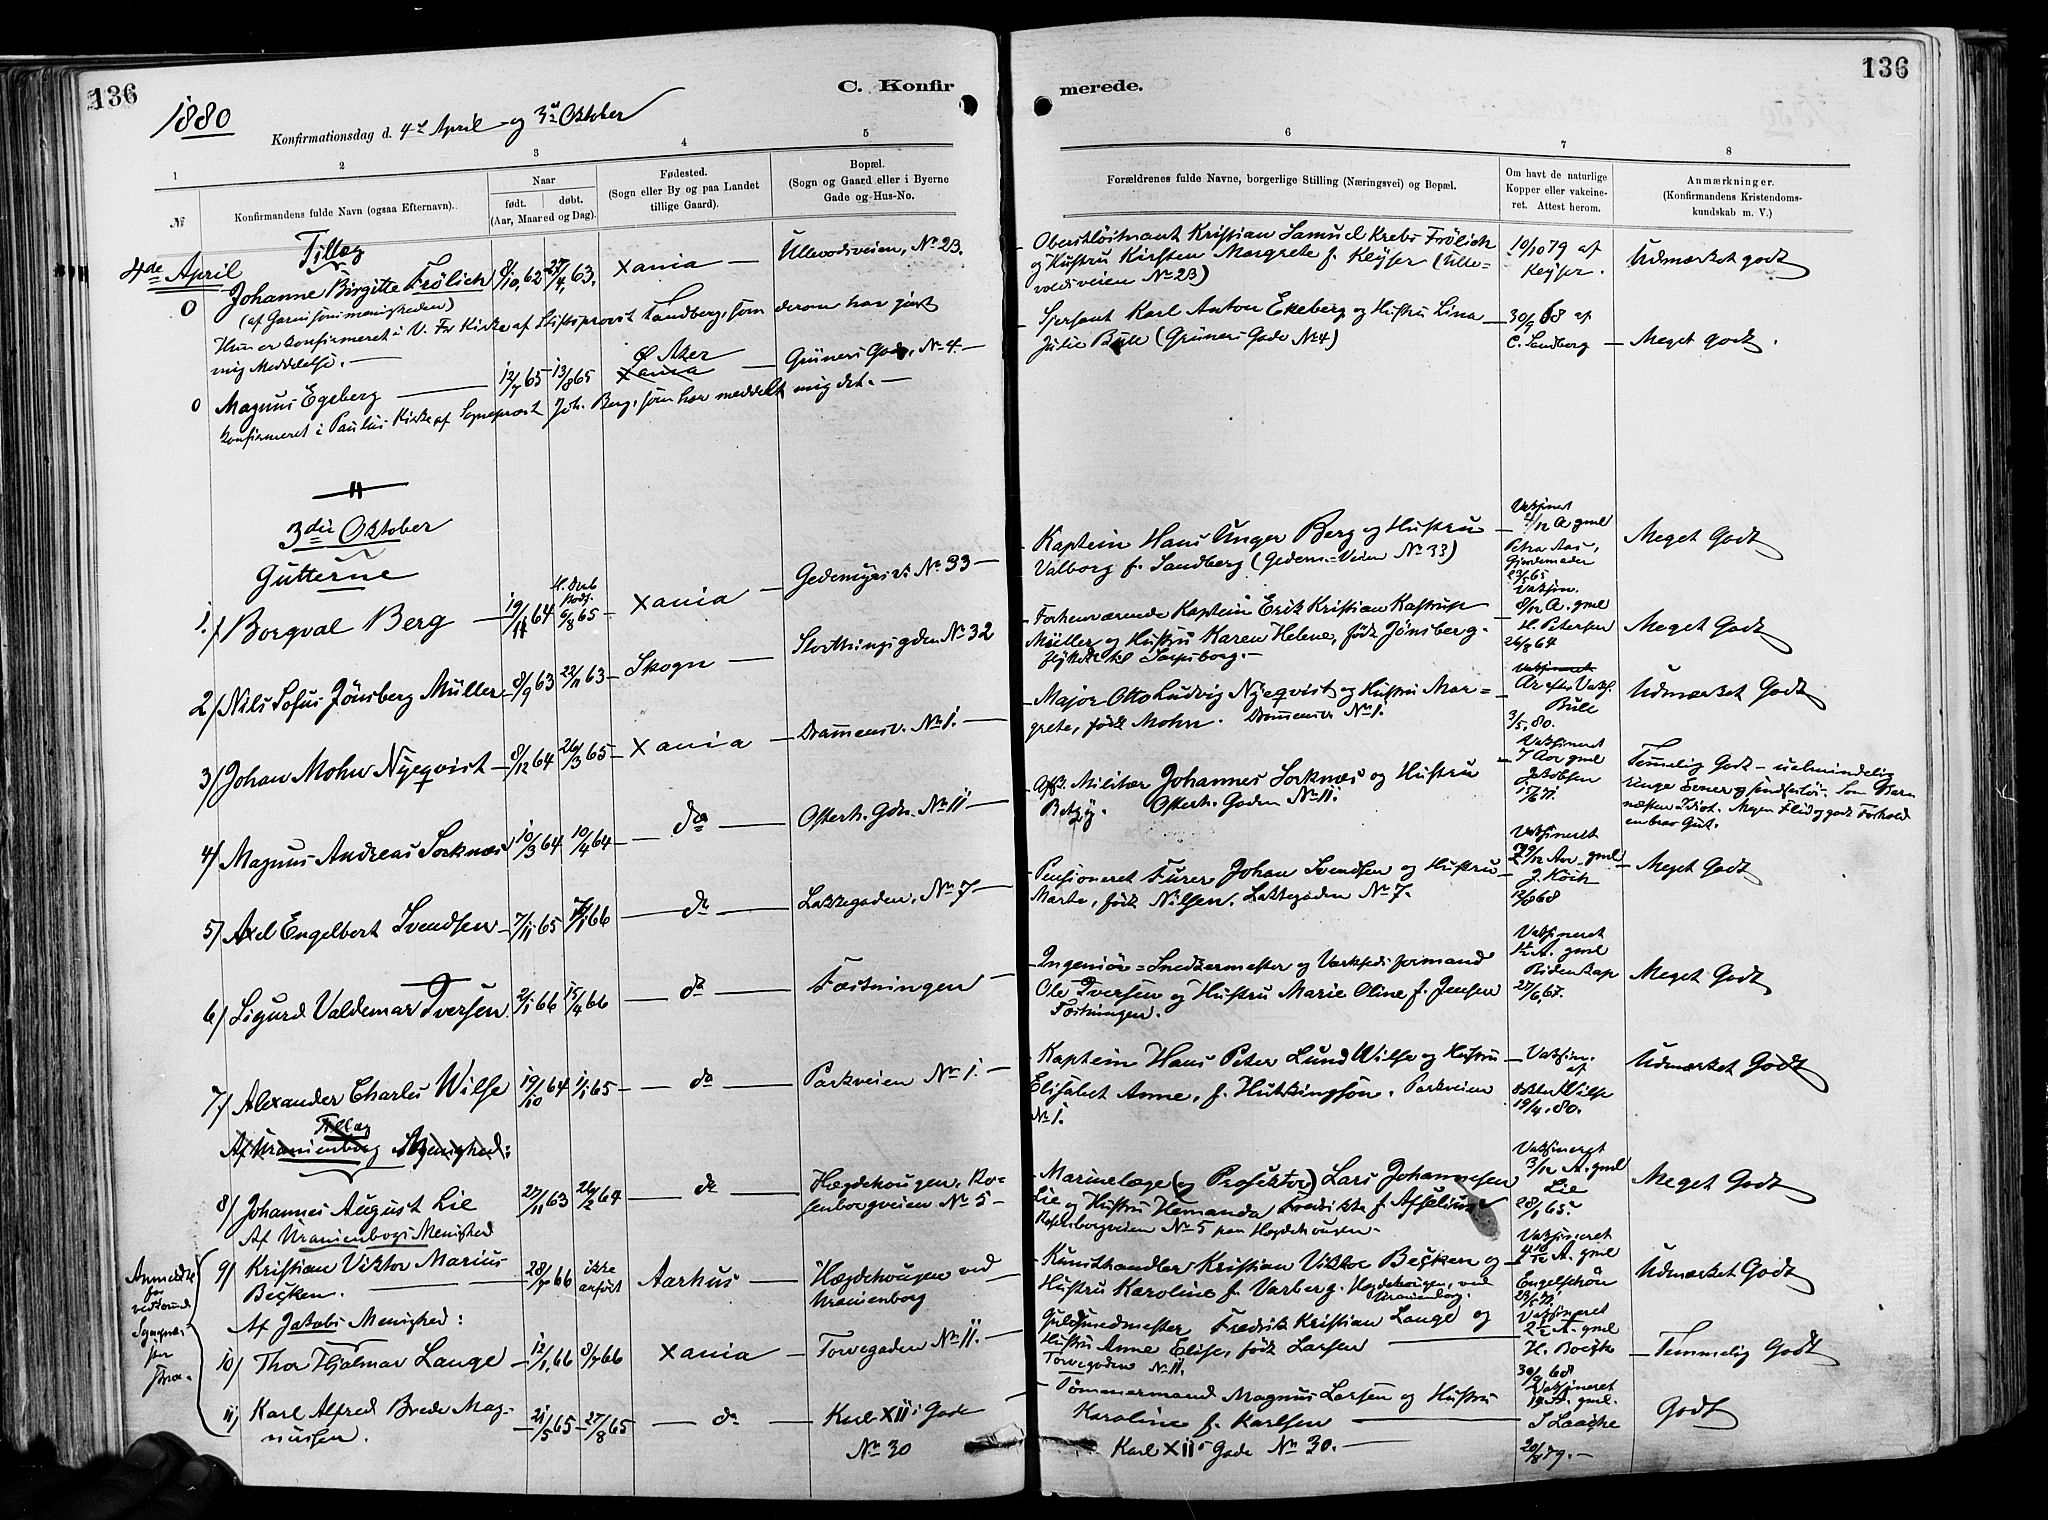 136
C. Konfir
merede.
136
1880
Konfirmationsdag d. 4de April og 3die Oktober
1
2
3
4
5
6
7
8
№
Konfirmandens fulde Navn (ogsaa Efternavn).
Naar
født. døbt.
(Aar, Maaned og Dag).
Fødested.
(Sogn eller By og paa Landet
tillige Gaard).
Bopæl.
(Sogn og Gaard eller i Byerne
Gade og Hus-No.
Forældrenes fulde Navne, borgerlige Stilling (Næringsvei) og Bopæl.
Om havt de naturlige
Kopper eller vakcine-
ret. Attest herom.
Anmærkninger.
(Konfirmandens Kristendoms-
kundskab m. V.)
Tillæg
4de April
0 Johanne Birgitte Frölich 8/10, 62 27/4, 63. Xania — Ullevoldsveien, No 2B.
(af Garnisonsmenigheden)
Oberstløitnant Kristian Samuel Krebs Frölich
og Hustru Kirsten Margrete f. Keyser (Ulle-
voldsveien No 2B)
10/10 79 af
Keyser.
Udmærket godt
Hun er konfirmeret i V. Frs Kirke af Stiftsprovst Landberg, som derom har gjort
mig Meddelelse. —
0 Magnus Egeberg — 12/7 65 13/8 65 Ø Aker
Xania — Grüners Gade, No 4. —
Sjersant Karl Anton Ekeberg og Hustru Lina
Julie Bull (Grüners Gade No 4)
30/9 68 af
C. Sandberg — Meget godt.
konfirmeret i Paulus Kirke af Sogneprest Joh. Berg, som har meddelt mig det. —
3die Oktober
Gutterne
1./ Borgval Berg — 19/11 64 6/8 65 — Xania — Gedemyrsv. No 33 —
Kaptein Hans Unger Berg og Hustru
Valborg f. Sandberg (Gedem.-Veien No 33)
Petra Aas,
Gjordemoder
Meget Godt
2/ Nils Sofus Jönsberg Müller 8/9 63 22/11 63 — Skogn — Storthingsgden No 32
Forhenværende Kaptein Erik Kristian Kastrup
Müller og Hustru Karen Helene, født Jönsberg.
flyttet til Sarpsborg. —
8/12 A. gml
H. Petersen
26/8 64
Meget Godt
3/ Johan Mohn Nyeqvist — 8/12 64 26/3 65 — Xania — Drammensv. No 1. —
Major Otto Ludvig Nyeqvist og Hustru Mar=
grete, født Mohn. Drammensv No 1.
Ar efter Vaks.
Bull
3/5. 80.
Udmærket Godt
4/ Magnus Andreas Sorknæs 10/3 64 10/4 64 — do — Osterh. Gdn. No 11 —
Afsk. Militær Johannes Sorknæs og Hustru
Betzy. Osterh. Gaden No 11.
Vaksineret
7 Aar gml
Jakobsen
Temmelig Godt — ualmindelig
ringe Evner og sandseslös. Som Barn
næsten Idiot. Megen Flid og godt Forhold
en brav Gut.
5/ Axel Engelbert Svendsen — 7/11 65 66 — do — Lakkegaden, No 7 —
Pensioneret Furer Johan Svendsen og Hustru
Marte, født Nilsen. Lakkegaden No 7.
Vaksineret
Aar gml
J. Koch
12/8 68
Meget Godt
6/ Sigurd Valdemar Iversen 2/1 66 15/4 66 — do — Fæstningen —
Ingeniör=Snedkermester og Værkstedsformand
Ole Iversen og Hustru Marie Oline f. Jensen
Fæstningen.
Vaksineret
A. gml
Ridenskap
27/6, 67.
Meget Godt
7/ Alexander Charles Wilse 19/10 64 1/1 65 — do — Parkveien No 1.
Kaptein Hans Peter Lund Wilse og Hustru
Elisabet Anne, f. Hutkingson. Parkveien
No 1.
Vaksin.
af
Wilse
19/4. 80.
Udmærket Godt
Tillæg
Af Uranienborg Menighed:
8/ Johannes August Lie 27/11 63 26/2 64 — do — Hægdehougen, Ro-
senborgveien No 5 —
Marinelæge (og Prosektor) Lars Johannesen
Lie og Hustru Hemanda Fredrikke f Afselius
Rosenborgveien No 5 paa Hægdehougen.
Vaksineret
3/12 A. gml
Lie
28/1 65.
Meget Godt
Af Uranienborgs Menighed
9/ Kristian Viktor Marius
Beçken. — 28/7 66 ikke
anført Aarhus — Hægdehougen ved
Uranienborg
Kunsthandler Kristian Viktor Beçken og
Hustru Karoline f. Varberg. Hægdehougen, ved
Uranienborg.
Vaksineret
4 10/12 A. gml
Engelschön
Udmærket Godt
Af Jakobs Menighed:
10/ Thor Hjalmar Lange 12/1, 66 8/7 66 Xania — Torvegaden No 11.
Guldsmedmester Fredrik Kristian Lange og
Hustru Anne Elise, født Larsen —
Torvegaden No 11.
Vaksineret
A. gml
30/9 68
Temmelig Godt
11/ Karl Alfred Brede Mag-
nussen. — 21/5 65 — 27/8 65 — do — Karl XII's Gade
No 30
Tömmermand Magnus Larsen og Hustru
Karoline f. Karlsen —
Karl XIIs Gade No 30. —
Vaksineret
S Laache
20/8 79. —
Godt